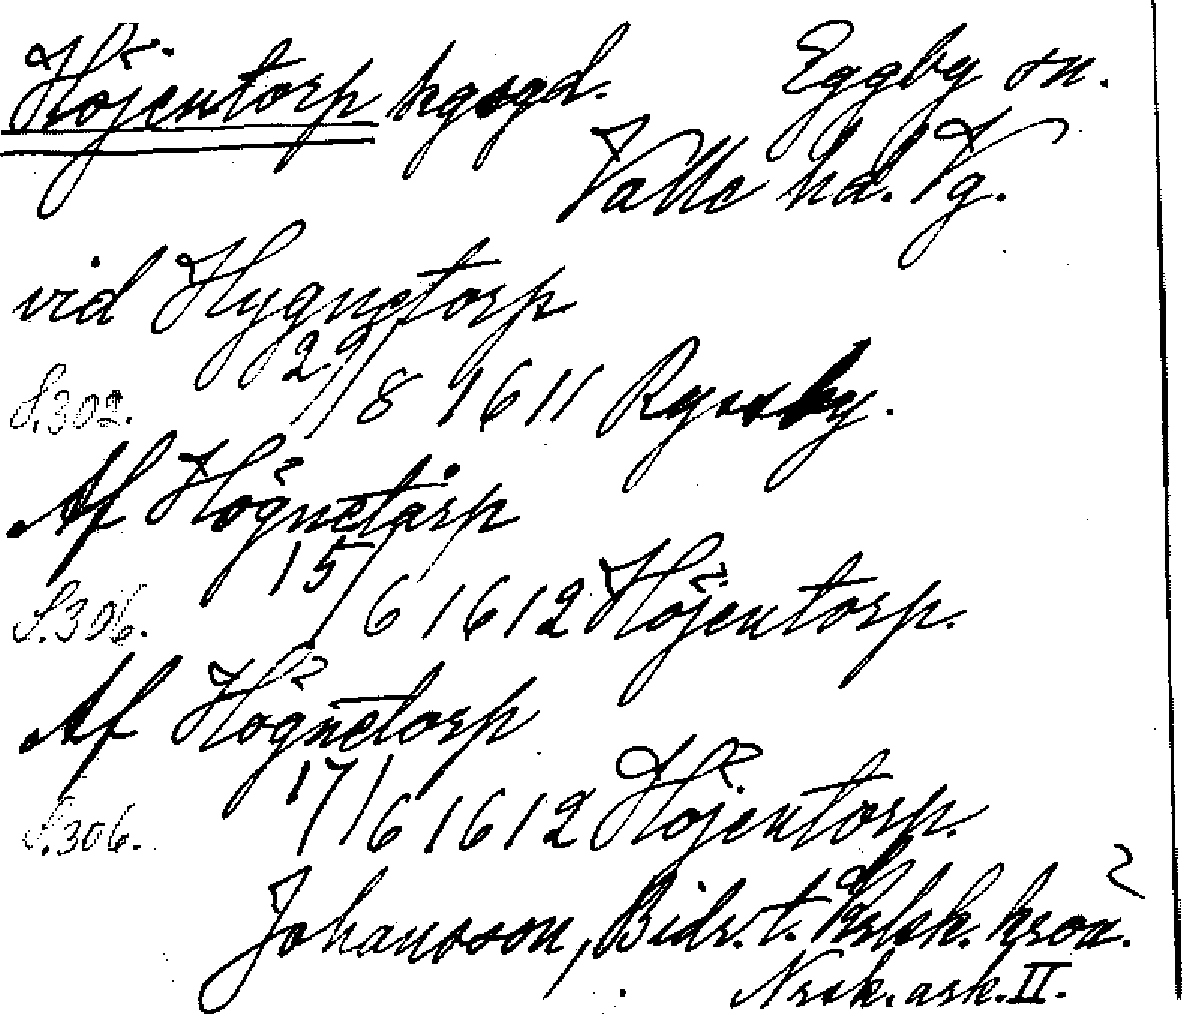 Höjentorp kgsgd. Eggby sn.
Valle hd. Vg.
vid Hygnetorp
S.302. 29/8 1611 Ryssby.
Af Högnetårp
S.306. 15/6 1612 Höjentorp.
Af Högnetorp
S.306. 17/6 1612 Höjentorp.
Johansson, Bidr. t. kron.
Nrsk. ark. II.